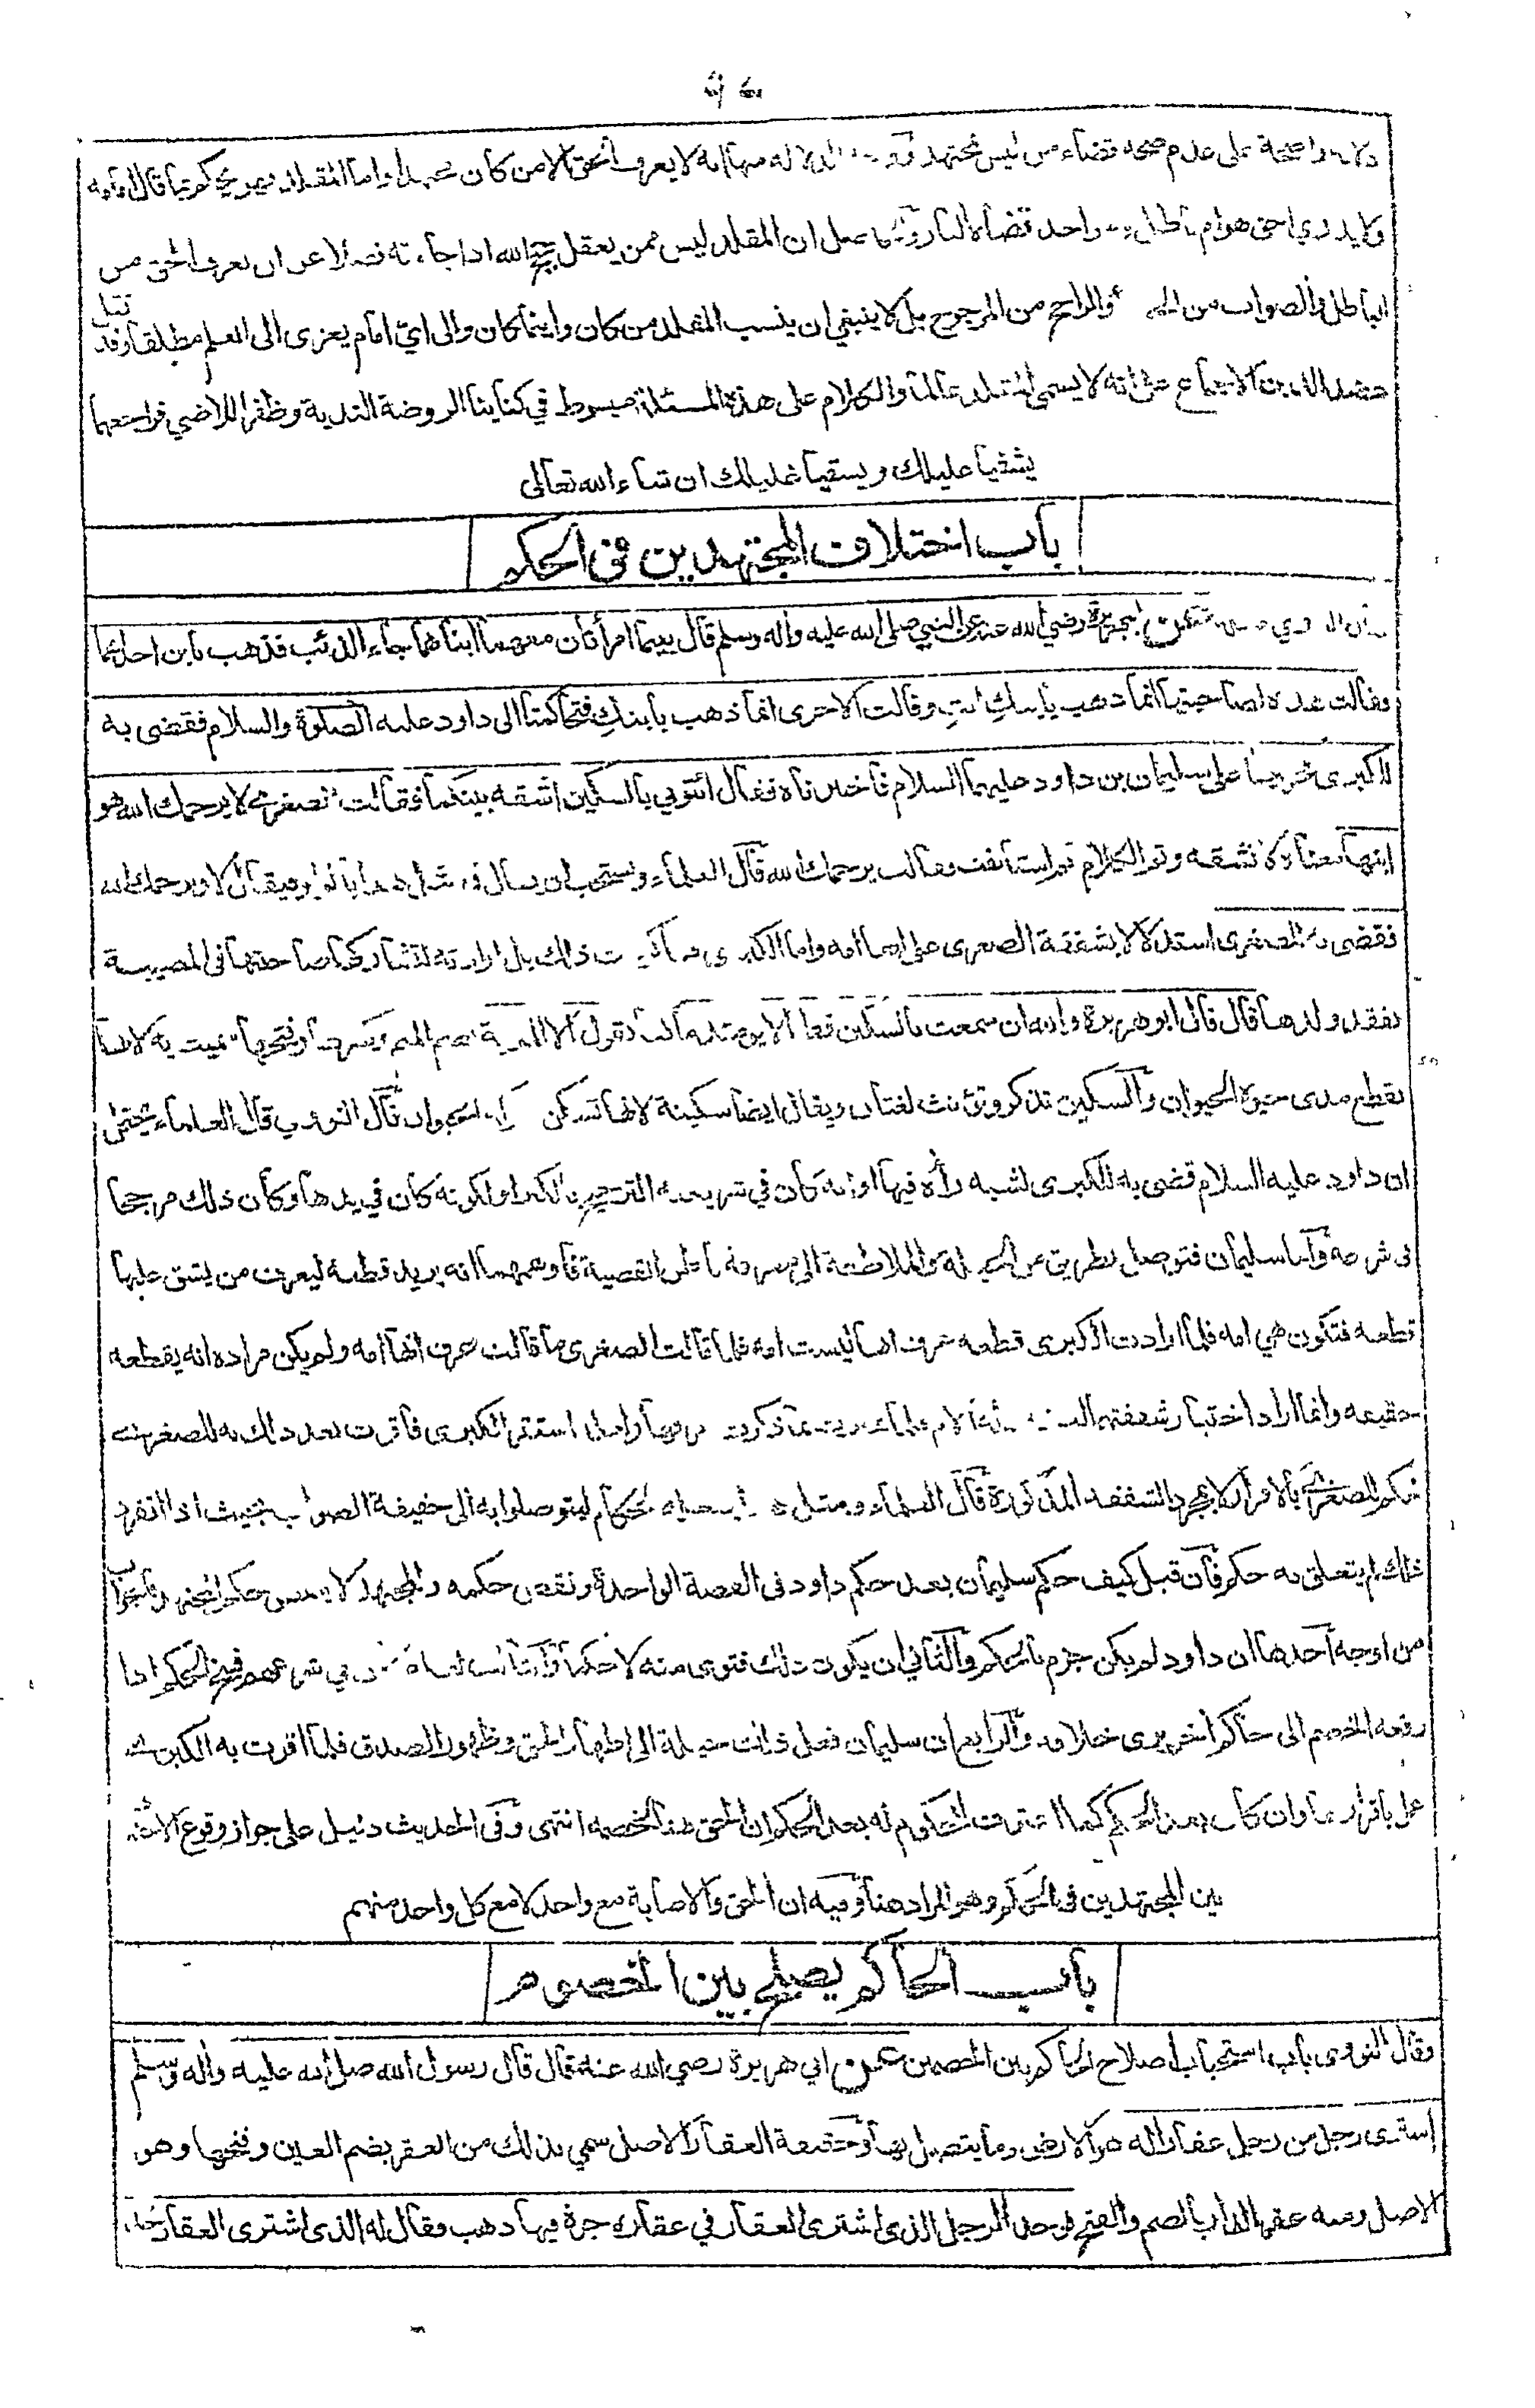 دلالة واضحة على عدم صحة قضاء من ليس بمجتهد الدلالة منها انه لا يعرف الحق الا من كان مجتهدا واما المقلد فهو يحكم بما قال امامه
ولا يدري احق هو ام باطل واحد قضاة النار والحاصل ان المقلد ليس ممن يعقل حجج الله اذا جاءته فضلا عن ان يعرف الحق من
الباطل والصواب من والراجح من المرجوح بل لا ينبغي ان ينسب المقلد من كان واينما كان والى اي امام يعزى الى العلم مطلقا وقد نقل
عضد الدين الاجماع على انه لا يسمى المقلد عالما والكلام على هذه المسئلة مبسوط في كتابنا الروضة الندية وظفر اللاضي فراجعهما
يشفيا عليلك ويسقيا غليلك ان شاء الله تعالى
باب اختلاف المجتهدين في الحكم
عن ابي هريرة رضي الله عنه عن النبي صلى الله عليه واله وسلم قال بينما امرأتان معهما ابناهما جاء الذئب فذهب بابن احداهما
فقالت هذه لصاحبتها انما ذهب بابنك انت وقالت الاخرى انما ذهب بابنك فتحاكمتا الى داود عليه الصلوة والسلام فقضى به
للكبرى فخرجتا على سليمان بن داود عليهما السلام فاخبرتاه فقال ائتوني بالسكين اشقه بينكما فقالت الصغرى لا يرحمك الله هو
ابنها معناه لا تشقه وتم الكلام ثم استأنفت وقالت يرحمك الله قال العلماء ويستحب ان يقال في مثل هذا بالواو فيقال لا ويرحمك الله
فقضى به للصغرى استدلالا بشفقة الصغرى على انها امه واما الكبرى فما كرهت ذلك بل ارادته لتشاركها صاحبتها في المصيبة
بفقد ولدها قال قال ابو هريرة والله ان سمعت بالسكين قط الا يومئذ ما كنا نقول الا المدية بضم الميم وكسرها وفتحها سميت به لانها
تقطع مدى حيوة الحيوان والسكين تذكر وتؤنث لغتان ويقال ايضا سكينة لانها تسكن حركة الحيوان قال النووي قال العلماء يحتمل
ان داود عليه السلام قضى به للكبرى لشبه رأه فيها او انه كان في شريعته الترجيح بالكبر او لكونه كان في يدها وكان ذلك مرجحا
في شرعه واما سليمان فتوصل بطريق من الحيلة والملاطفة الى معرفة باطن القضية فاوهمهما انه يريد قطعه ليعرف من يشق عليها
قطعه فتكون هي امه فلما ارادت الكبرى قطعه عرف انها ليست امه فلما قالت الصغرى ما قالت عرف انها امه ولم يكن مراده انه يقطعه
حقيقة وانما اراد اختبار شفقتهما الام فلما ذكرت استقر الكبرى فاقرت بعد ذلك به للصغرى
فحكم للصغرى بالاقرار لا بمجرد الشفقة المذكورة قال العلماء ومثل هذا يفعله الحكام ليتوصلوا به الى حقيقة الصواب بحيث اذا انفرد
ذلك لم يتعلق به حكم فان قيل كيف حكم سليمان بعد حكم داود في القصة الواحدة ونقض حكمه والمجتهد لا ينقض حكم المجتهد فالجواب
من اوجه احدها ان داود لم يكن جزم بالحكم والثاني ان يكون ذلك فتوى منه لا حكما والثالث لعله في شرعهم فسخ الحكم اذا
رفعه الخصم الى حاكم اخر يرى خلافه والرابع ان سليمان فعل ذلك حيلة الى اظهار الحق وظهور الصدق فلما اقرت به الكبرى
عمل باقرارها وان كان بعد الحكم كما اذا اعترف المحكوم له بعد الحكم ان الحق هنا لخصمه انتهى وفي الحديث دليل على جواز وقوع الاختلاف
بين المجتهدين في الحكم وهو المراد هنا وفيه ان الحق والاصابة مع واحد لا مع كل واحد منهم
باب الحاكم يصلح بين الخصوم
وقال النووي باب استحباب اصلاح الحاكم بين الخصمين عن ابي هريرة رضي الله عنه قال قال رسول الله صلى الله عليه واله وسلم
اشترى رجل من رجل عقارا له هو الارض وما يتصل بها وحقيقة العقار الاصل سمي بذلك من العقر بضم العين وفتحها وهو
الاصل ومنه عقر الدار بالضم والفتح فوجد الرجل الذي اشترى العقار في عقاره جرة فيها ذهب وقال له الذي اشترى العقار خذ